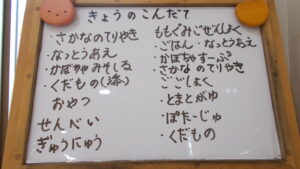 きょうのこんだて
・さかなのてりやき
・なっとうあえ
・かぼちゃみそしる
・くだもの(添)
おやつ
せんべい
ぎゅうにゅう
ももぐみごぜんしょく
・ごはん・なっとうあえ
・かぼちゃすーぷ
・さかなのてりやき
ごごしょく
・とまとがゆ
・ぽたーじゅ
・くだもの